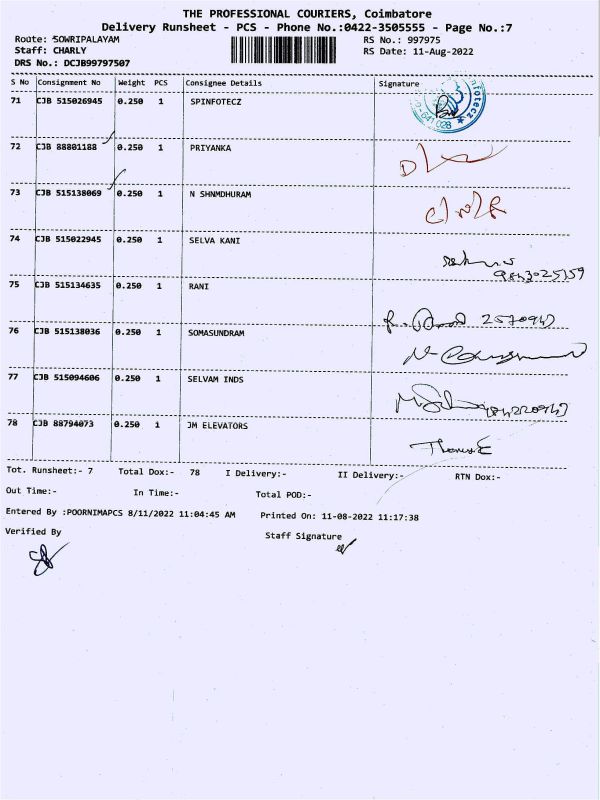 THE PROFESSIONAL COURIERS, Coimbatore
Delivery Runsheet - PCS - Phone No.:0422-3505555 - Page No.:7
Route: SOWRIPALAYAM RS No.: 997975
Staff: CHARLY RS Date: 11-Aug-2022
DRS No.: DCJB99797507
S No Consignment No Weight PCS Consignee Details Signature
71 CJB 515026945 0.250 1 SPINFOTECZ
72 CJB 88801188 0.250 1 PRIYANKA
73 CJB 515138069 0.250 1 N SHNMDHURAM
74 CJB 515022945 0.250 1 SELVA KANI
75 CJB 515134635 0.250 1 RANI
76 CJB 515138036 0.250 1 SOMASUNDRAM
77 CJB 515094606 0.250 1 SELVAM INDS
78 CJB 88794073 0.250 1 JM ELEVATORS
Tot. Runsheet:- 7 Total Dox:- 78 I Delivery:- II Delivery:- RTN Dox:-
Out Time:- In Time:- Total POD:-
Entered By :POORNIMAPCS 8/11/2022 11:04:45 AM Printed On: 11-08-2022 11:17:38
Verified By Staff Signature